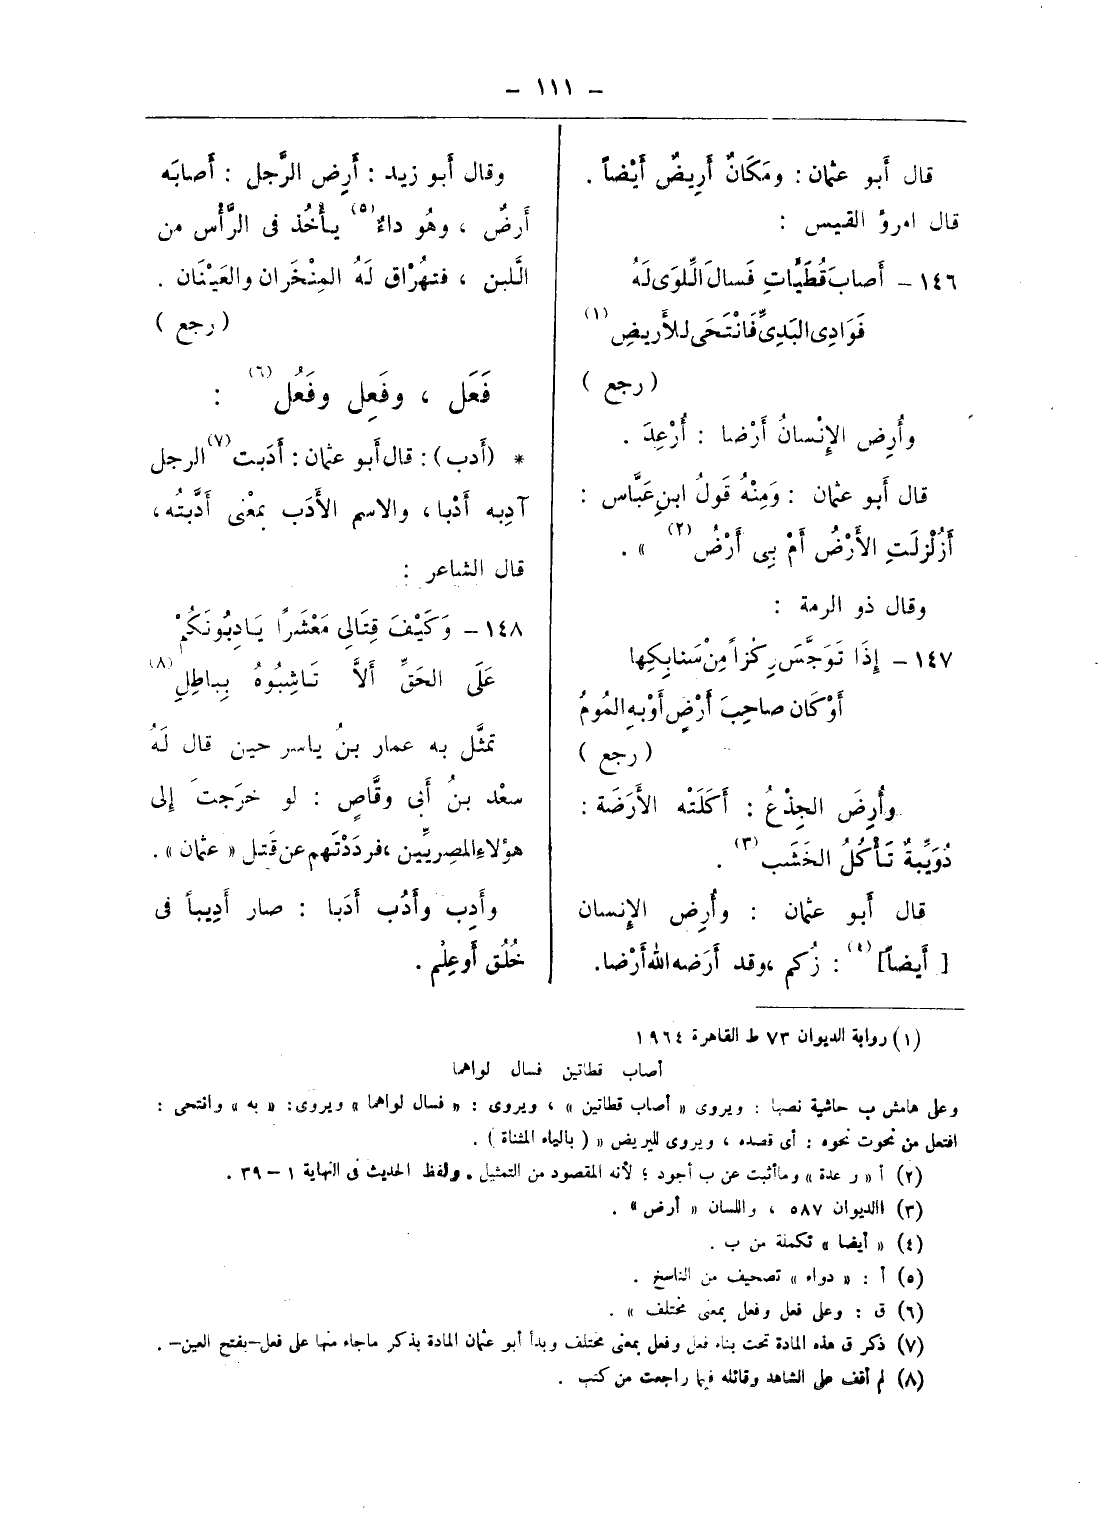 - ١١١ -
قال أَبو عثمان : ومَكَانٌ أَرِيضٌ أَيْضاً .
قال امرؤ القيس :
١٤٦ - أَصابَ قُطَيَّاتٍ فَسالَ الِّلوَى لَهُ
فَوَادِى البَدِىِّ فَانْتَحَى للأَرِيضِ (١)
( رجع )
وأُرِض الإِنْسانُ أَرْضا : أُرْعِدَ .
قال أَبو عثمان : وَمِنْهُ قَولُ ابنِ عَبَّاس :
أَزُلْزِلَتِ الأَرْضُ أَمْ بِى أَرْضُ (٢) » .
وقال ذو الرمة :
١٤٧ - إِذَا تَوَجَّسَ رِكْزاً مِنْ سَنابِكِها
أَوْ كَان صاحِبَ أَرْضٍ أَوْ بهِ المُومُ
( رجع )
وأُرِضَ الجِذْعُ : أَكَلَتْه الأَرَضَة :
دُوَيِّبةٌ تَأْكُلُ الخَشَب (٣) .
قال أَبو عثمان : وأُرِض الإِنسان
[ أَيضاً ] (٤) : زُكم ، وقد أَرَضه الله أَرْضا.
وقال أَبو زيد : أَرِض الرَّجل : أَصابَه
أَرضٌ ، وهُو داءٌ (٥) يأْخُذ فى الرَّأْس من
الَّلبن ، فتهُرْاق لَهُ المِنْخَران والعَيْنَان .
( رجع )
فَعَل ، وفَعِل وفَعُل (٦) :
* (أَدب) : قال أَبو عثمان : أَدَبت (٧) الرجل
آدِبه أَدْبا ، والاسم الأَدَب بمعْنى أَدَّبتُه ،
قال الشاعر :
١٤٨ - وَكَيْفَ قِتَالِى مَعْشَرًا يَادِبُونَكُمْ
عَلَى الحَقِّ أَلاَّ تَاشِبُوهُ بِباطِلِ (٨)
تمثَّل به عمار بنُ ياسر حين قال لَهُ
سعْد بنُ أَبى وقَّاصٍ : لو خرَجتَ إِلى
هؤلاءِ المصرِيِّين ، فردَدْتَهم عن قَتل « عثمان » .
وأَدِب وأَدُب أَدَبا : صار أَدِيباً فى
خُلُق أَو عِلْم .
(١) رواية الديوان ٧٣ ط القاهرة ١٩٦٤
أصاب قطاتين فسال لواهما
وعلى هامش ب حاشية نصها : ويروى « أصاب قطاتين » ، ويروى : « فسال لواهما » ويروى : « به » وانتحى :
افتعل من نحوت نحوه : أى قصده ، ويروى لليريض » ( بالياء المثناة ) .
(٢) أ « رعدة » وماأثبت عن ب أجود ؛ لأنه المقصود من التمثيل . ولفظ الحديث فى النهاية ١ - ٣٩ .
(٣) االديوان ٥٨٧ ، واللسان « أرض » .
(٤) « أيضا » تكملة من ب .
(٥) أ : « دواء » تصحيف من الناسخ .
(٦) ق : وعلى فعل وفعل بمعنى مختلف » .
(٧) ذكر ق هذه المادة تحت بناء فعل وفعل بمعنى مختلف وبدأ أبو عثمان المادة بذكر ماجاء منها على فعل-بفتح العين-.
(٨) لم أقف على الشاهد وقائله فيما راجعت من كتب .